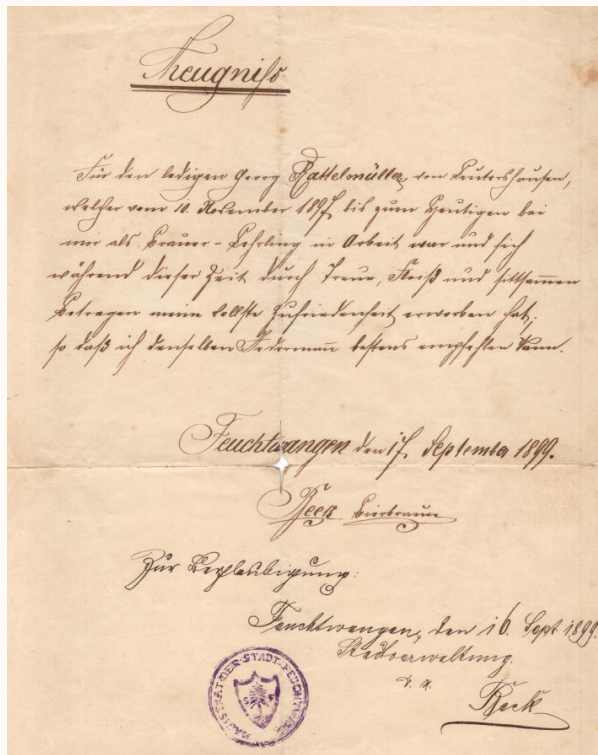 Zeugniß
Für den ledigen Georg Rattelmüller von Leutershausen,
welcher vom 10. November 1897 bis zum Heutigen bei
mir als Brauer-Lehrling in Arbeit war und sich
während dieser Zeit durch Treue, Fleiß und sittsamen
Betragen meine vollste Zufriedenheit erworben hat,
so daß ich denselben Jedermann bestens empfehlen kann.
Feuchtwangen den 17. September 1899.
Bierbrauer
Zur Beglaubigung:
Feuchtwangen, den 16. Sept. 1899.
Stadtverwaltung.
MAGISTRAT DER STADT FEUCHTWANGEN